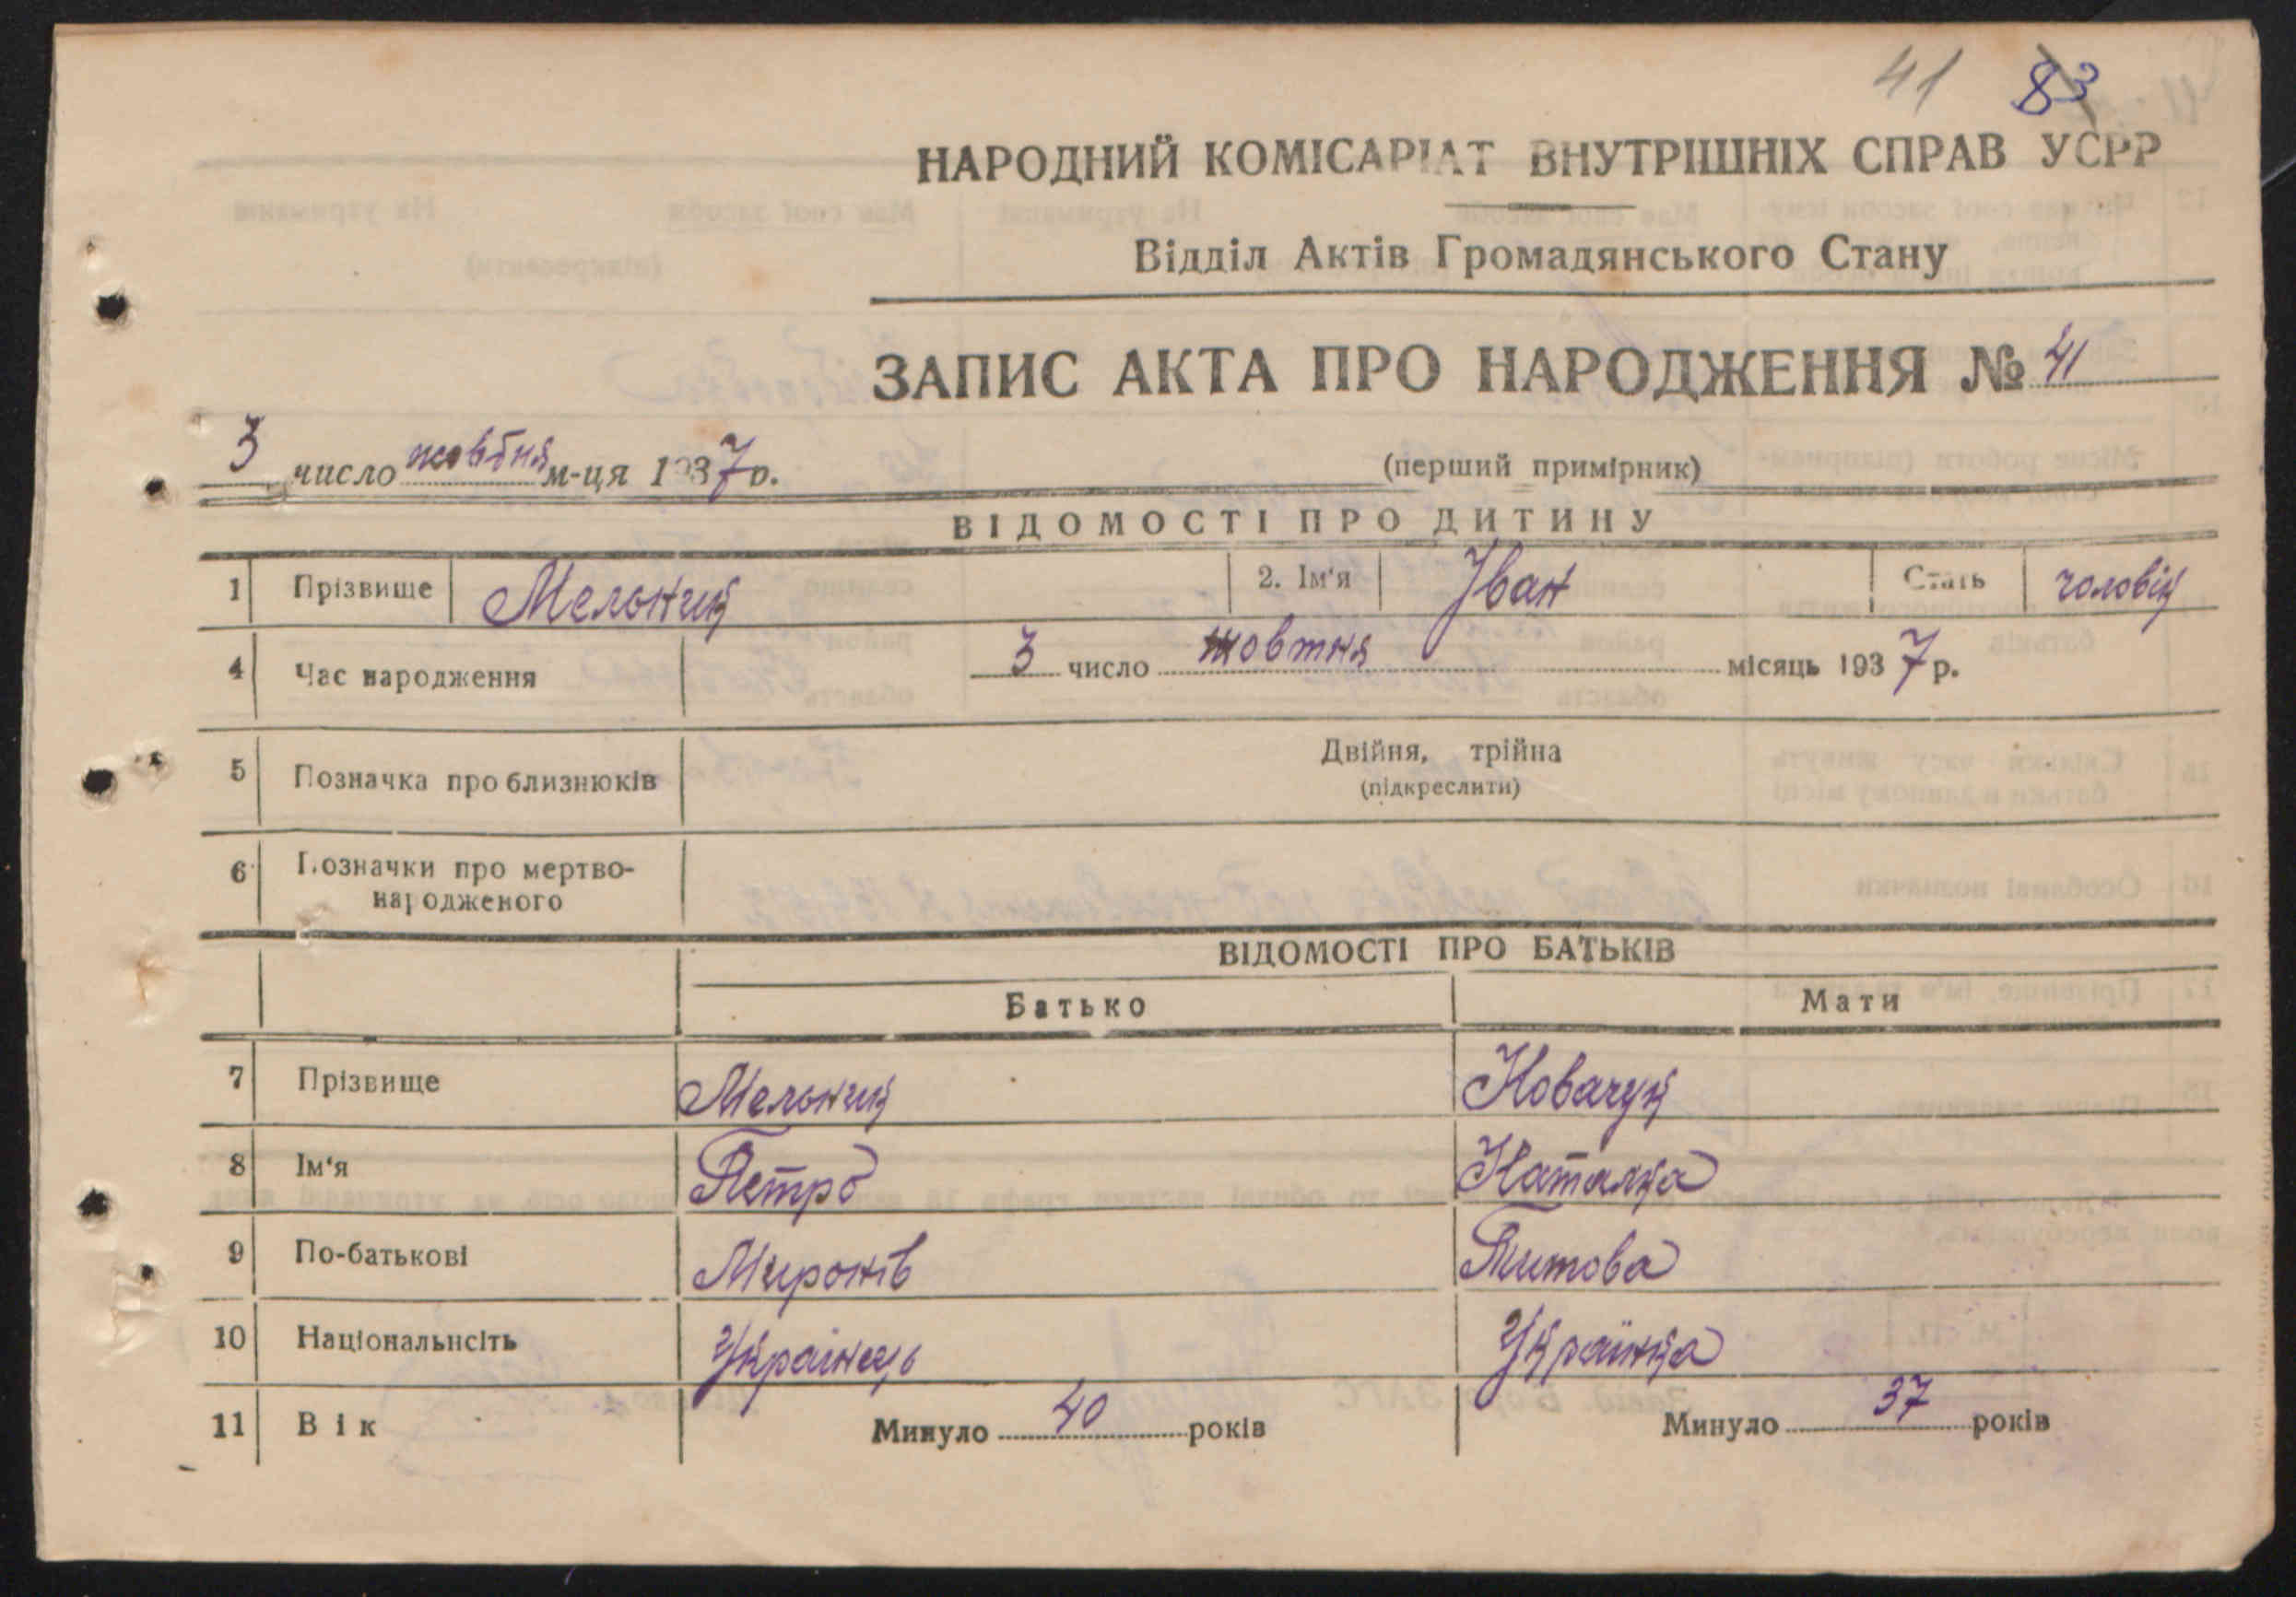 41 83
НАРОДНИЙ КОМІСАРІАТ ВНУТРІШНІХ СПРАВ УСРР
Відділ Актів Громадянського Стану
ЗАПИС АКТА ПРО НАРОДЖЕННЯ № 41
3 число жовтня м-ця 1937 р.
(перший примірник)
ВІДОМОСТІ ПРО ДИТИНУ
1 Прізвище Мельник 2. Ім'я Іван Стать чоловік
4 Час народження 3 число жовтня місяць 1937 р.
5 Позначка про близнюків Двійня, трійна
(підкреслити)
6 Позначки про мертво-
народженого
ВІДОМОСТІ ПРО БАТЬКІВ
Батько Мати
7 Прізвище Мельник Новачук
8 Ім'я Петро Наталка
9 По-батькові Миронів Титова
10 Національнсіть Українець Українка
11 Вік Минуло 40 років Минуло 37 років